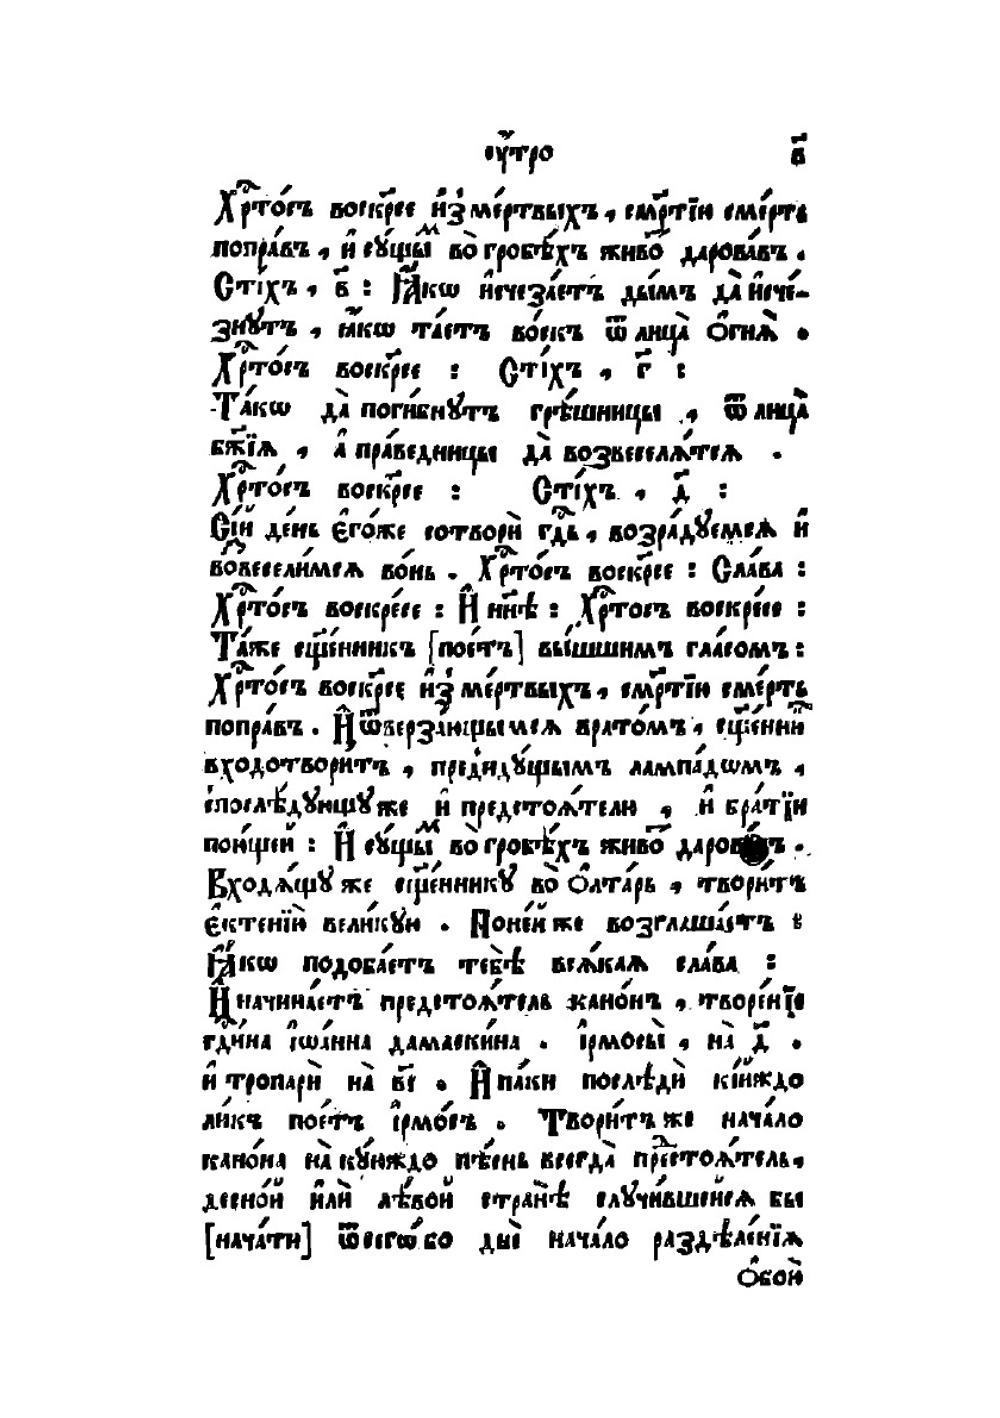 оу҆́тро в҃
Хрⷭ҇то́съ воскр҃се и҆з̾ме́ртвыхъ , сме́ртїю сме́рть
попра́въ , и҆ су́щыⷨ во̀гробѣ́хъ живо́тъ дарова́въ .
Сті́хъ , в҃ : Ꙗ҆́кѡ и҆счеза́етъ ды́мъ да̀и҆сче́-
знꙋтъ , ꙗ҆́кѡ та́етъ во́скъ ѿлица̀ ѻ҆гнѧ̀ .
Хрⷭ҇то́съ воскр҃се : Сті́хъ , г҃ :
Та́кѡ да̀поги́бнꙋтъ грѣ́шницы , ѿлица̀
бж҃їѧ , а҆ пра́ведницы да̀ возвеселѧ́тсѧ .
Хрⷭ҇то́съ воскр҃се : Сті́хъ , д҃ :
Сі́й де́нь є҆го́же сотворѝ гдⷭ҇ь , возра́дꙋемсѧ и҆
возвесели́мсѧ во́нь . Хрⷭ҇то́съ воскр҃се : Сла́ва :
Хрⷭ҇то́съ воскре́се : И҆ нн҃ѣ : Хрⷭ҇тосъ воскре́се :
Та́же сщ҃е́нникъ [пое́тъ] вы́шшимъ гла́сомъ :
Хрⷭ҇то́съ воскр҃се и҆з̾ме́ртвыхъ , см҃ртїю сме́рть
попра́въ . И҆ ѿверза́ющымсѧ врато́мъ , сщ҃е́нниⷦ
входотвори́тъ , предидꙋ́щымъ лампа́дѡмъ ,
спослѣ́дꙋющꙋже и҆ предстоѧ́телю , и҆ бра́тїи
пою́щей : И҆ сꙋ́щыⷨ во̀гробѣ́хъ живо҃ дарова́въ .
Входѧ́щꙋже сщ҃е́нникꙋ во̀ ѻ҆лта́рь , твори́тъ
є҆ктенїю̀ вели́кꙋю . Поне́йже возглаша́етъ :
Ꙗ҆́кѡ подоба́етъ тебѣ̀ всѧ́каѧ сла́ва :
И҆ начина́етъ предстоѧ́тель кано́нъ , творе́нїе
гдⷭ҇и́на і҆ѡа́нна дамаски́на . і҆рмосы̀ , на̀ д҃ .
и҆ тропарѝ на̀ в҃і . И҆ па́ки послѣдѝ кі́йждо
ли́къ пое́тъ і҆рмо́съ . Твори́тъже нача́ло
кано́на на̀кꙋ́юждо пѣ́снь всегда̀ прⷣестоѧ́тель ,
десно́й и҆лѝ лѣ́вой странѣ̀ слꙋчи́вшейсѧ бы
[нача́ти] ѿсегѡ́бо ды҃ нача́ло раздѣле́нїѧ
ѻ҆бои̑